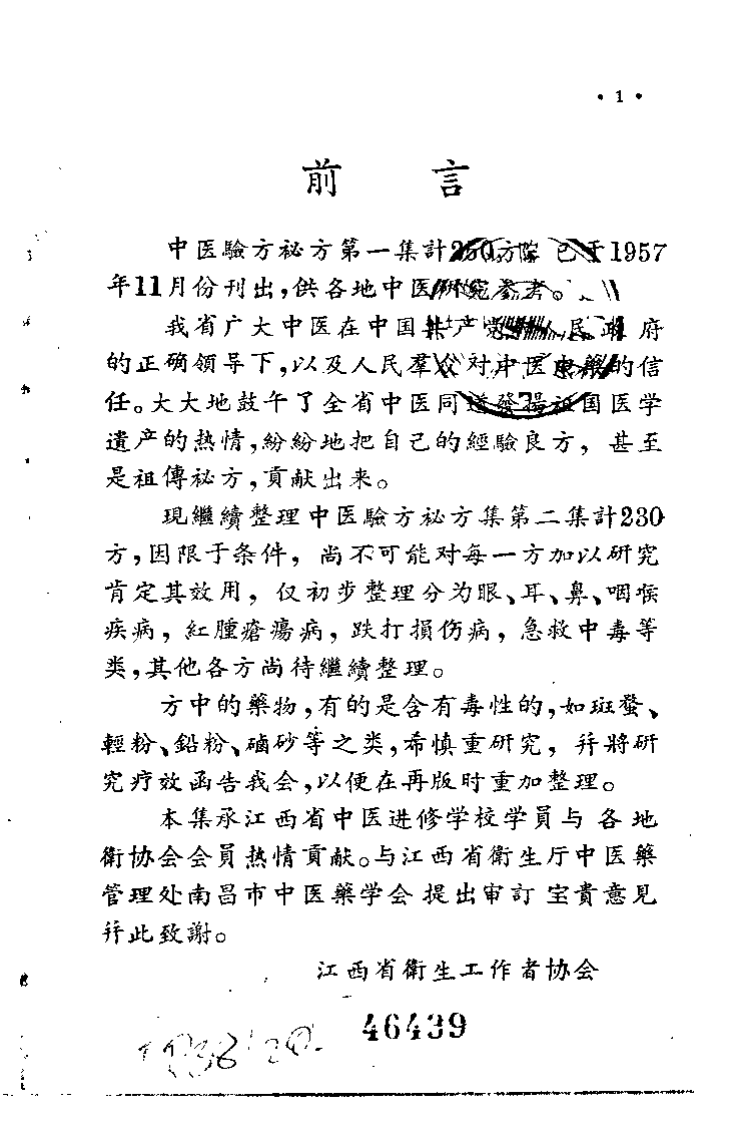 • 1 •
前　言
中医驗方祕方第一集計250方　已于1957
年11月份刊出,供各地中医研究参考。
我省广大中医在中国共产党　人民政府
的正确領导下,以及人民羣众对中医中藥的信
任。大大地鼓午了全省中医同道發揚祖国医学
遺产的热情,紛紛地把自己的經驗良方，甚至
是祖傳祕方,貢献出来。
現繼續整理中医驗方祕方集第二集計230
方,因限于条件，尚不可能对每一方加以研究
肯定其效用，仅初步整理分为眼、耳、鼻、咽喉
疾病，紅腫瘡瘍病，跌打損伤病，急救中毒等
类,其他各方尚待繼續整理。
方中的藥物,有的是含有毒性的,如斑蝥、
輕粉、鉛粉、硇砂等之类,希慎重研究，幷將研
究疗效函告我会,以便在再版时重加整理。
本集承江西省中医进修学校学員与各地
衛协会会員热情貢献。与江西省衛生厅中医藥
管理处南昌市中医藥学会提出审訂宝貴意見
幷此致謝。
江西省衛生工作者协会
46439